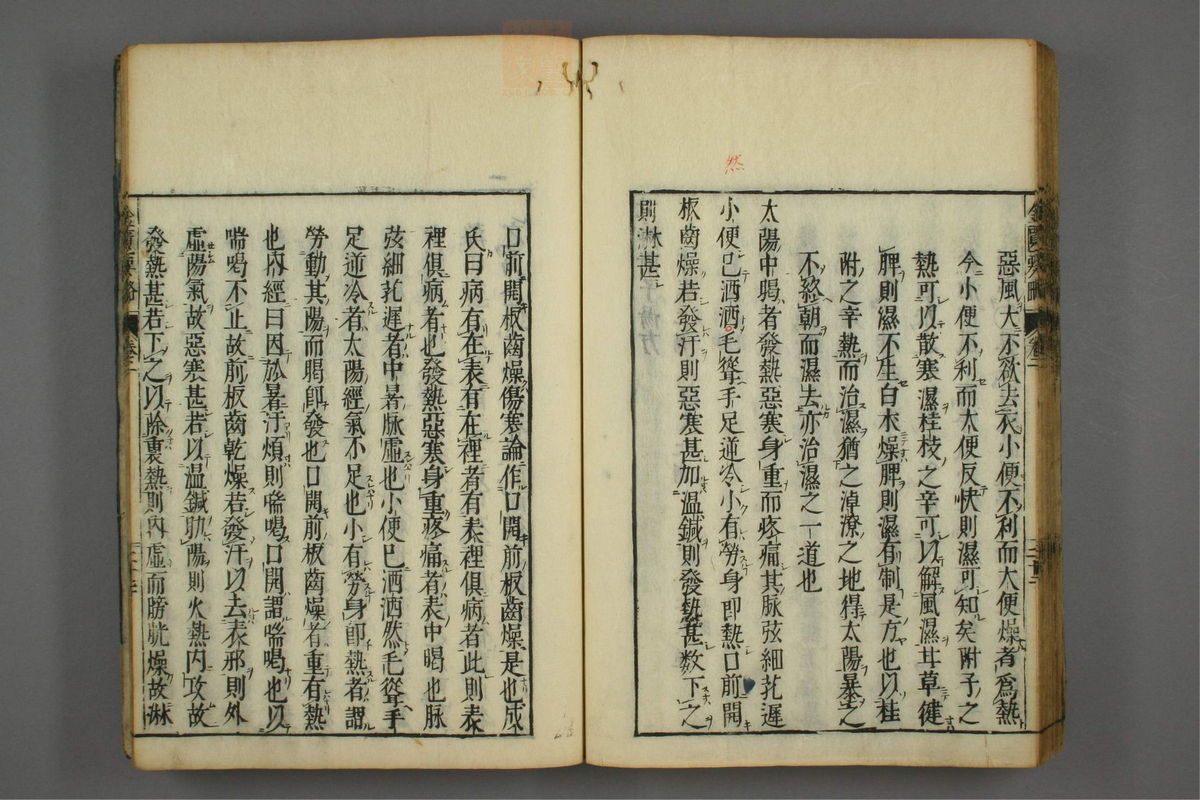 惡風大不欲去衣小便不利而大便燥者爲熱
今小便不利而大便反快則濕可知矣附子之
熱可以散寒濕桂枝之辛可以解風濕甘草健
脾則濕不生白朮燥脾則濕有制是方也以桂
附之辛熱而治濕猶之淖潦之地得太陽暴之
不終朝而濕去亦治濕之一道也
太陽中暍者發熱惡寒身重而疼痛其脉弦細芤遲
小便已洒洒毛聳手足逆冷小有勞身即熱口前開
板齒燥若發汗則惡寒甚加温鍼則發熱甚数下之
則淋甚
然
口前開板齒燥傷寒論作口開前板齒燥是也成
氏曰病有在表有在裡者有表裡俱病者此則表
裡俱病者也發熱惡寒身重疼痛者表中暍也脉
弦細芤遲者中暑脉虚也小便已洒洒然毛聳手
足逆冷者太陽經氣不足也小有勞身即熱者謂
勞動其陽而暍即發也口開前板齒燥者重有熱
也内經曰因於暑汗煩則喘喝口開謂喘喝也以
喘喝不止故前板齒乾燥若發汗以去表邪則外
虚陽氣故惡寒甚若以温鍼助陽則火熱内攻故
發熱甚若下之以除裏熱則内虚而膀胱燥故淋